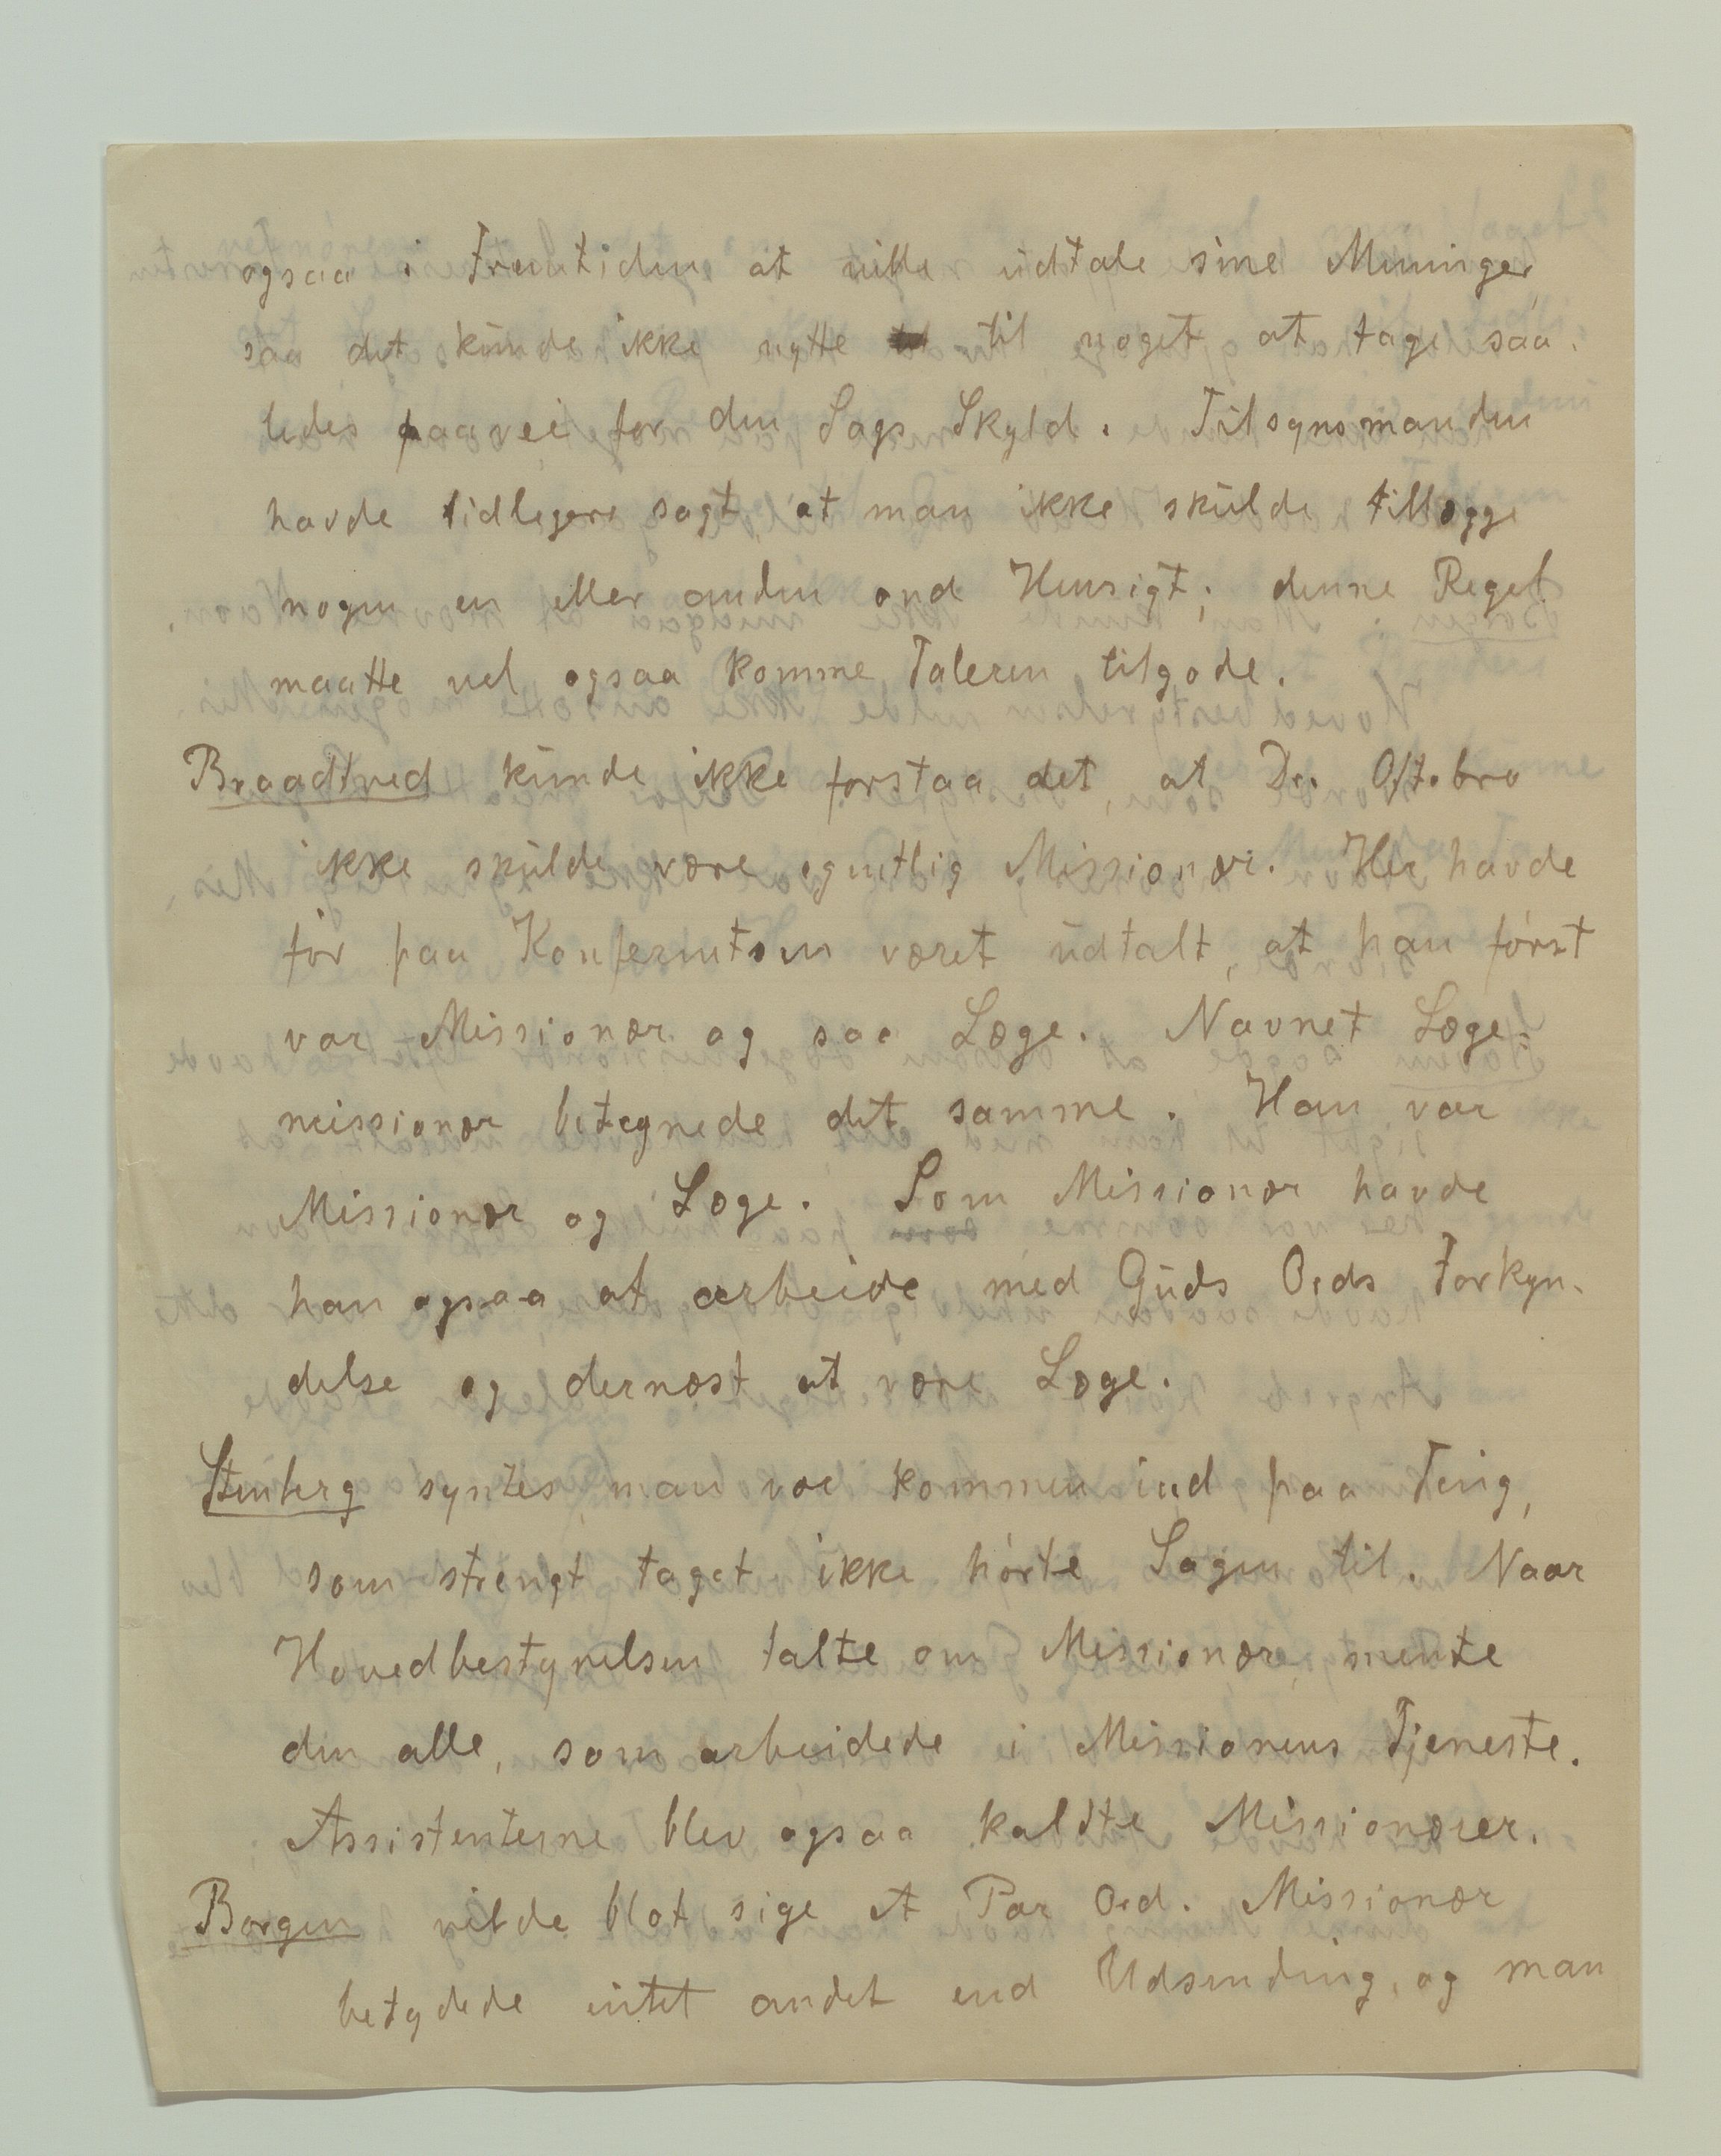 ogsaa i Fremtiden at ville udtale sine Meninger,
saa det kunde ikke nytte til noget at tage saa-
ledes paavei for den Sags Skyld. Tilsynsmanden
havde tidligere sagt, at man ikke skulde tillægge
nogen en eller anden ond Hensigt; denne Regel
maatte vel ogsaa komme Taleren tilgode.
Braadtved kunde ikke forstaa det at Dr. Oftebro
ikke skulde være egentlig Missionær. Her havde
før paa Konferentsen været udtalt, at han først
var Missionær og saa Læge. Navnet Læge-
missionær betegnede det samme. Han var
Missionær og Læge. Som Missionær havde
han ogsaa at arbeide med Guds Ords Forkyn-
delse og dernæst at være Læge.
Stenberg syntes, man var kommen ind paa Ting,
som strengt taget ikke hørte Sagen til. Naar
Hovedbestyrelsen talte om Missionære, mente
den alle, som arbeidede i Missionens Tjeneste.
Assistenterne blev ogsaa kaldte Missionærer.
Borgen vilde blot sige et Par Ord. Missionær
betydede intet andet end Udsending, og man